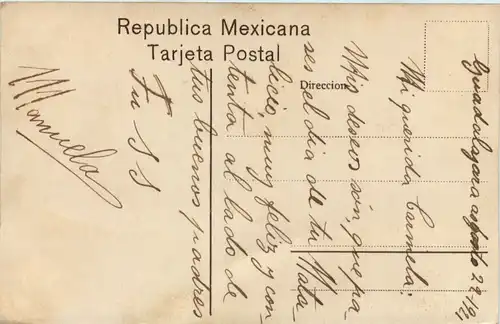 Republica Mexicana
Tarjeta Postal
Direccion
Guadalajara agosto 29-19
Mi querida Carmela:
Mis deseos són, que pa-
ses el dia de tu Nata-
licio, muy feliz y con-
tenta al lado de
tus buenos padres
Tu S S
Manuela